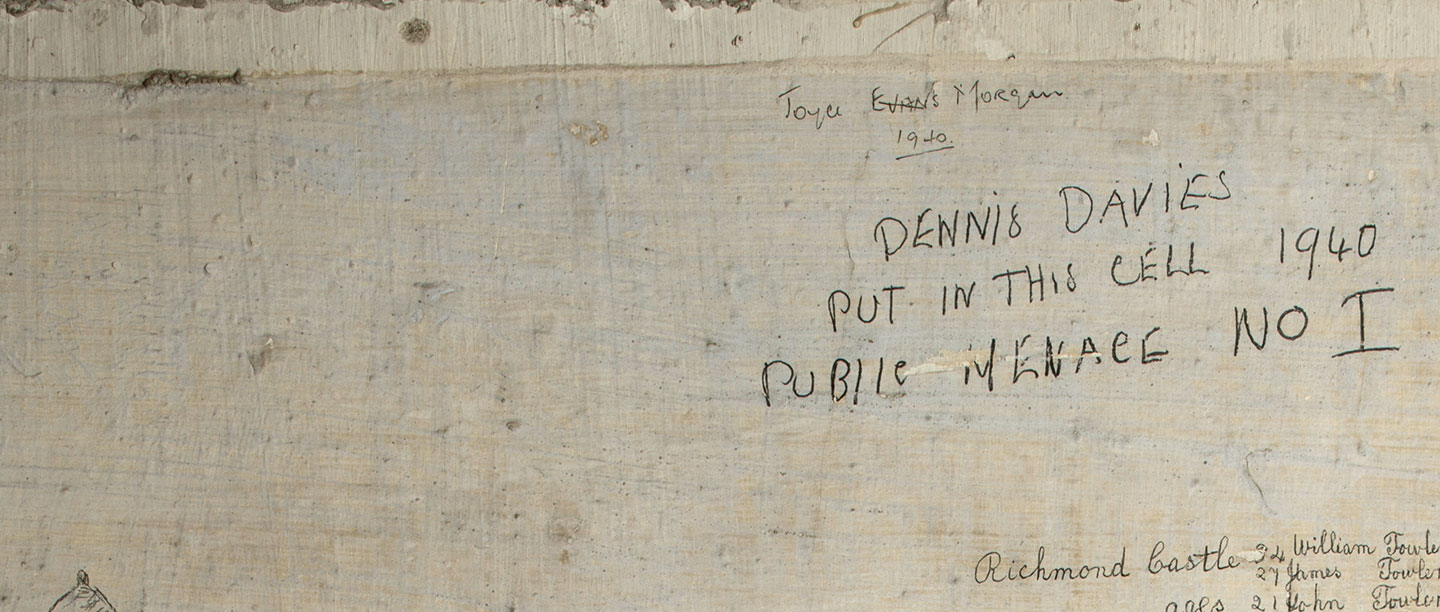 Joyce EVANS Morgan
1940.
DENNIS DAVIES
PUT IN THIS CELL 1940
PUBlIC MENACE NO I
Richmond Castle 34 William Fowle
27 James Fowler
ages 21 John Fowler